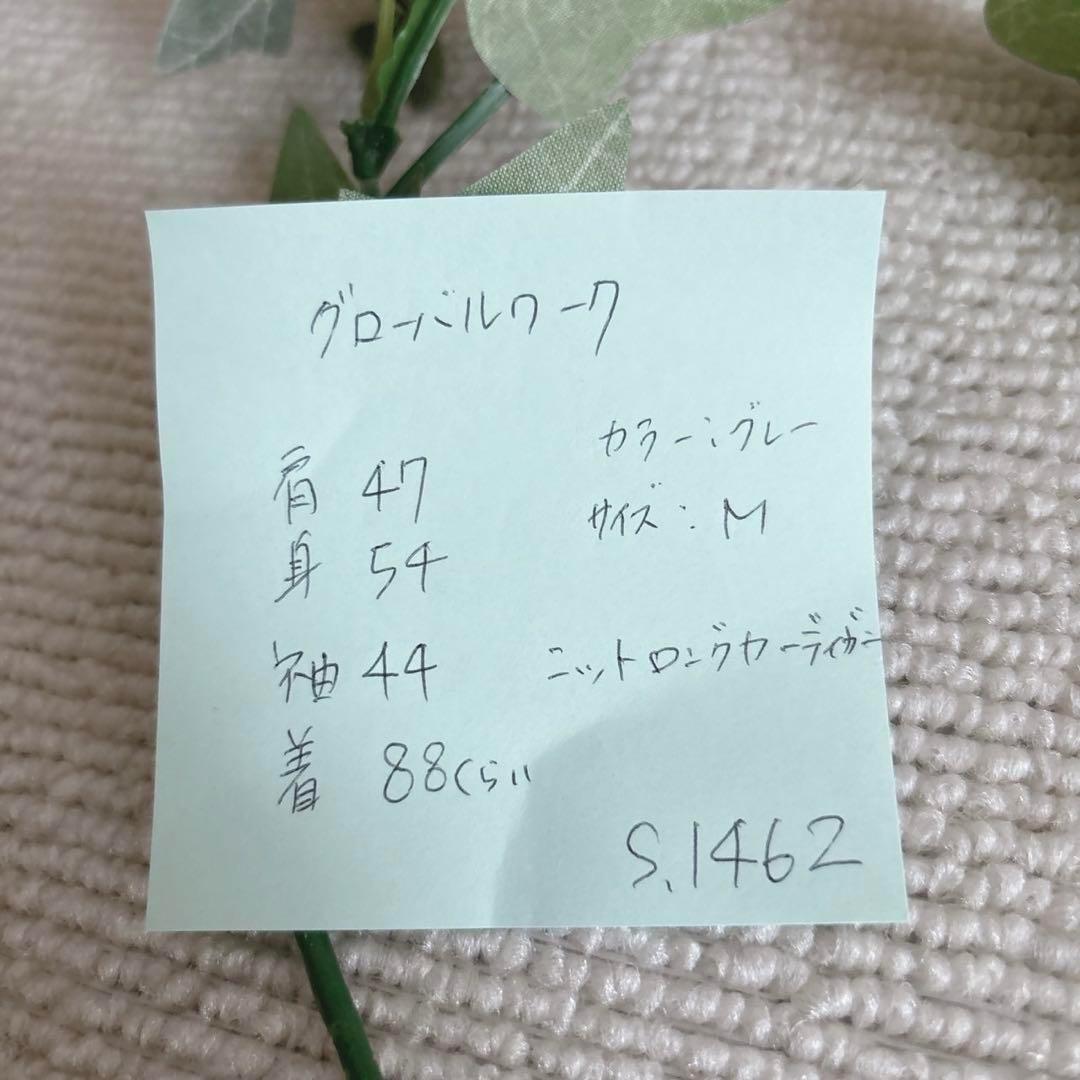 グローバルワーク
カラー:グレー
肩 47
サイズ:M
身 54
袖 44
ニットロングカーディガン
着 88くらい
S.1462